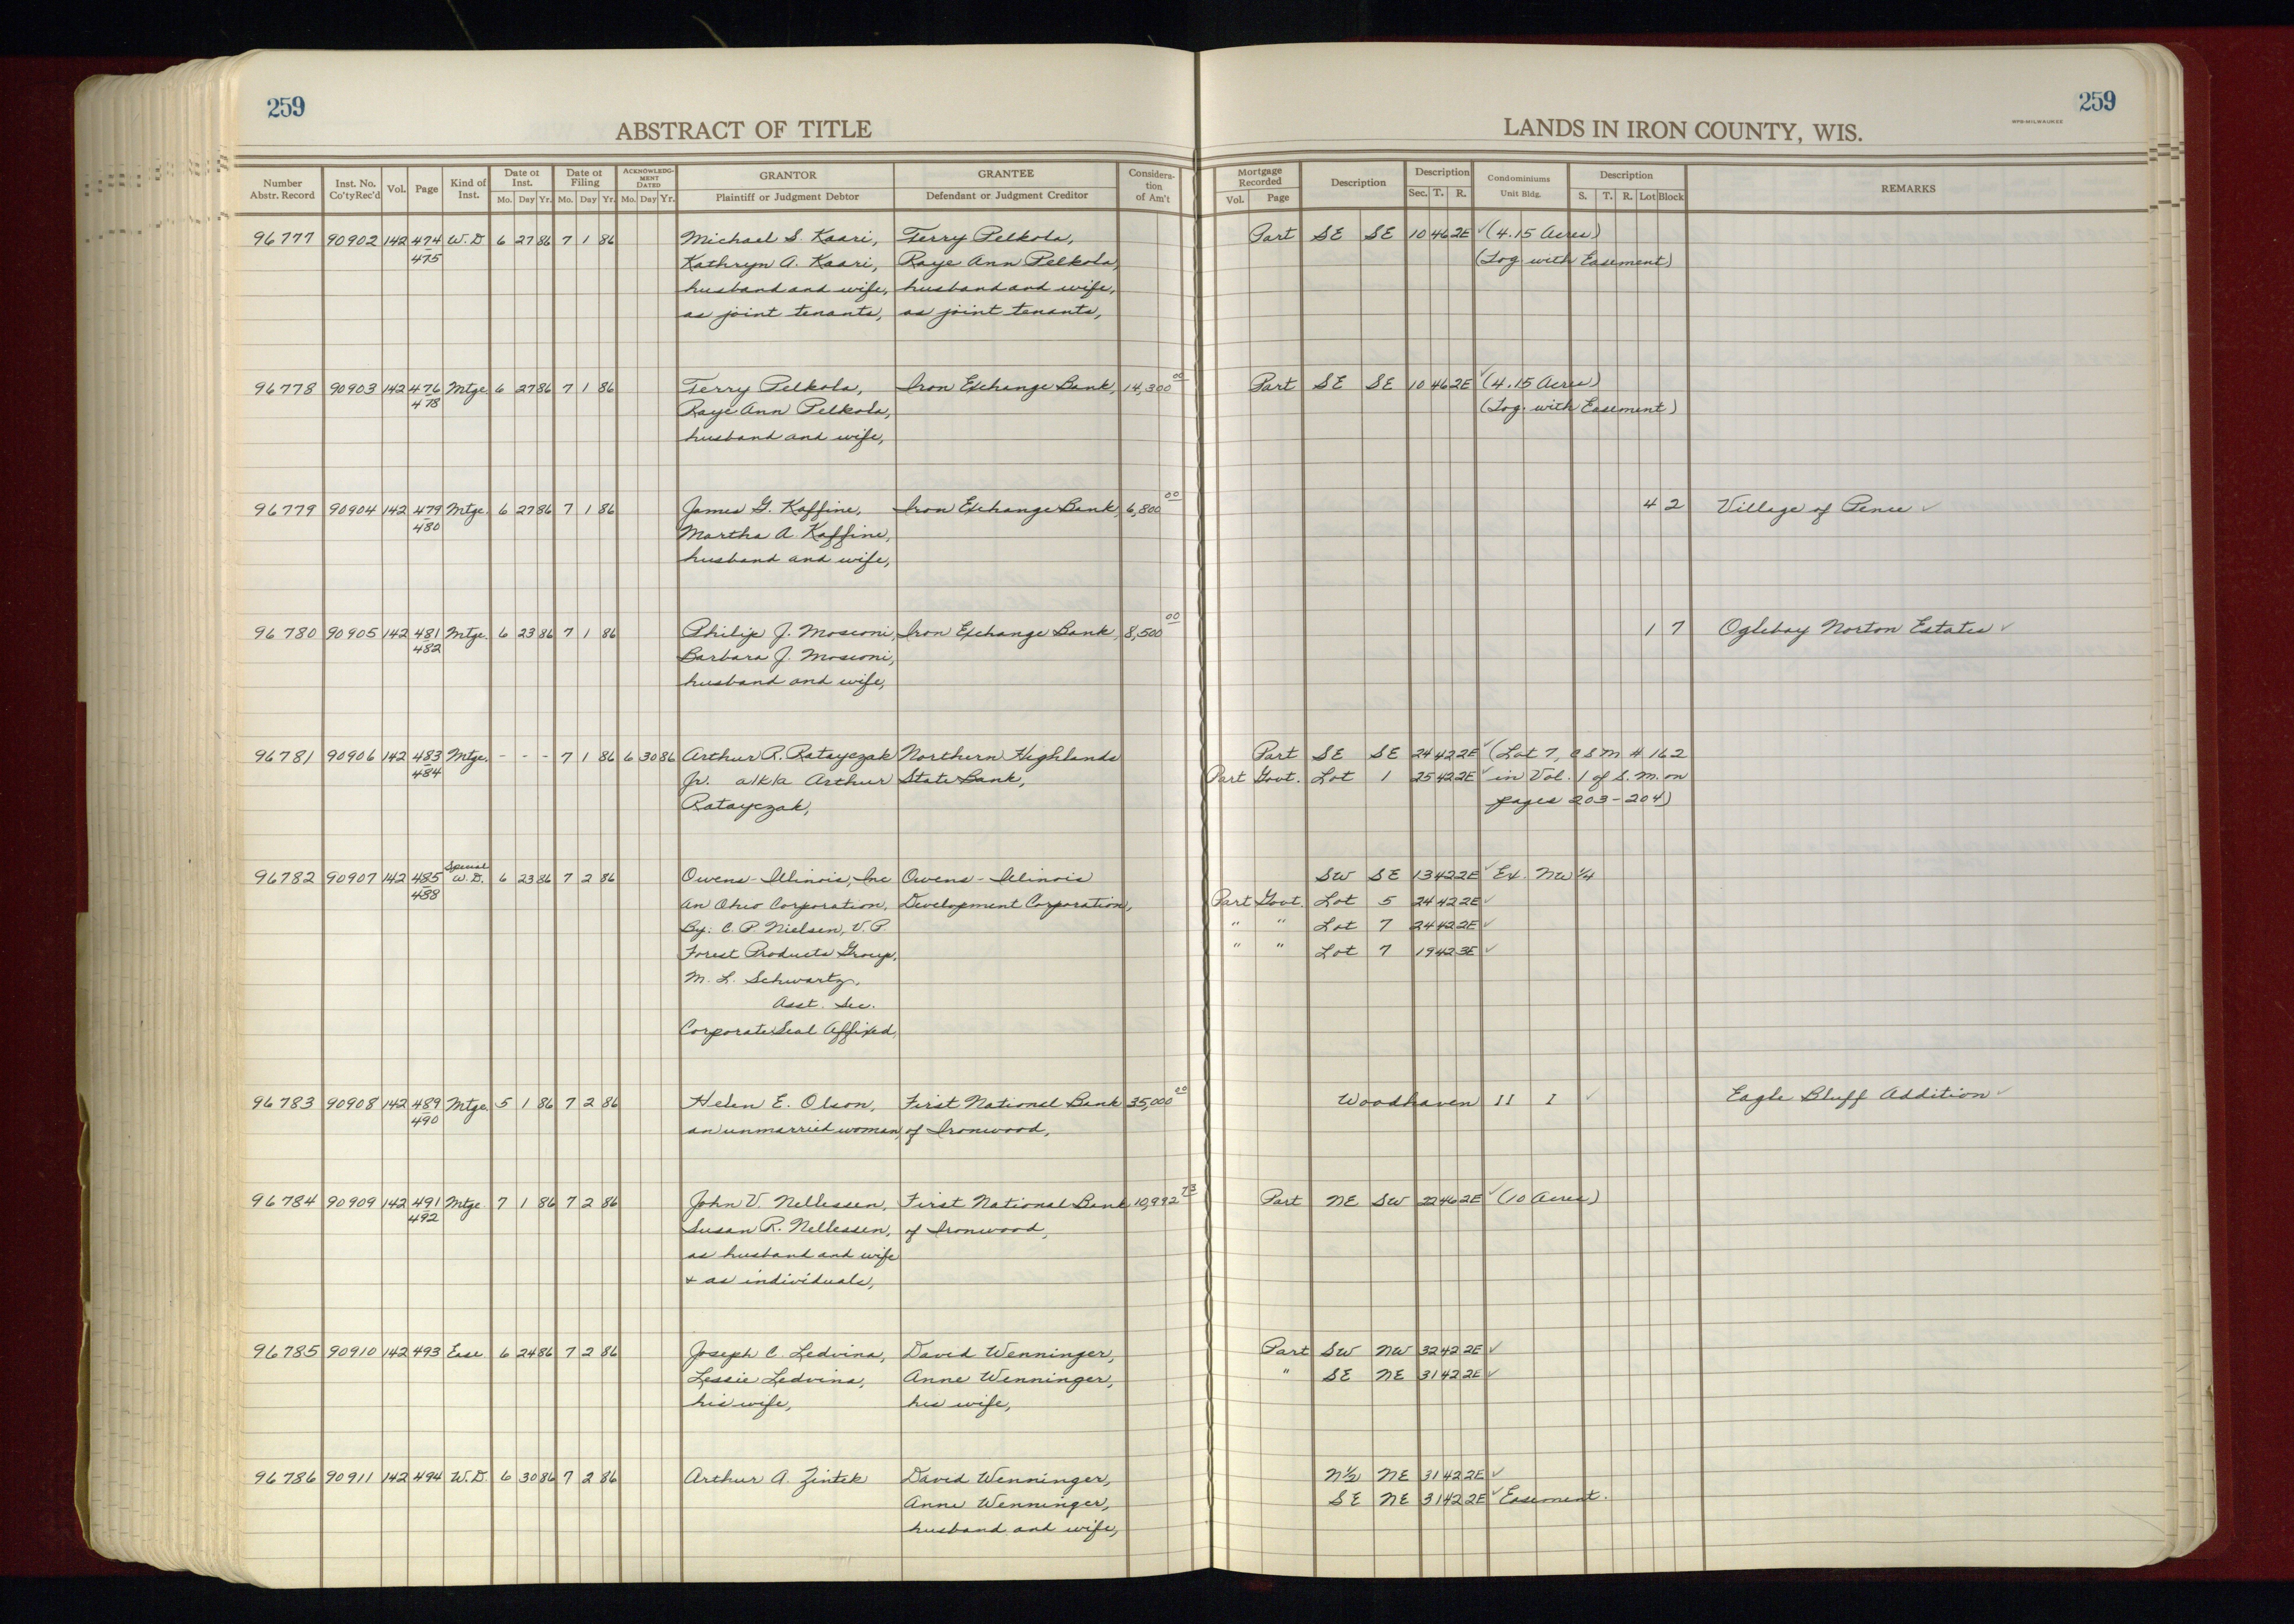 259
ABSTRACT OF TITLE
LANDS IN IRON COUNTY, WIS.
259
Number Abstr. Record | Inst. No. Co'ty Rec'd | Vol. | Page | Kind of Inst. | Date of Inst. Mo. Day Yr. | Date of Filing Mo. Day Yr. | ACKNOWLEDGMENT DATED Mo. Day Yr. | GRANTOR Plaintiff or Judgment Debtor | GRANTEE Defendant or Judgment Creditor | Consideration of Am't | Mortgage Recorded Vol. Page | Description | Description Sec. T. R. | Condominiums Unit Bldg. | Description S. T. R. Lot Block | REMARKS
96777 90902 142 474 W.D 6 27 86 7 1 86 Michael S. Kaari, Terry Pelkola, Part SE SE 10 46 2E ✓ (4.15 Acres)
475 Kathryn A. Kaari, Raye Ann Pelkola, (Tog with Easement)
husband and wife, husband and wife,
as joint tenants, as joint tenants,
96778 90903 142 476 Mtge. 6 27 86 7 1 86 Terry Pelkola, Iron Exchange Bank, 14,300 00 Part SE SE 10 46 2E ✓ (4.15 Acres)
478 Raye Ann Pelkola, (Tog. with Easement)
husband and wife,
96779 90904 142 479 Mtge. 6 27 86 7 1 86 James G. Kaffine, Iron Exchange Bank, 6,800 00 4 2 Village of Pence ✓
480 Martha A. Kaffine,
husband and wife,
96780 90905 142 481 Mtge. 6 23 86 7 1 86 Philip J. Mosconi, Iron Exchange Bank, 8,500 00 1 7 Oglebay Norton Estates ✓
482 Barbara J. Mosconi,
husband and wife,
96781 90906 142 483 Mtge. - - - 7 1 86 6 30 86 Arthur R. Ratayczak Northern Highlands Part SE SE 24 42 2E ✓ (Lot 7, CSM # 162
484 Jr. a/k/a Arthur State Bank, Part Govt. Lot 1 25 42 2E ✓ in Vol. 1 of S.M. on
Ratayczak, pages 203-204)
96782 90907 142 485 Special W.D. 6 23 86 7 2 86 Owens-Illinois, Inc Owens-Illinois SW SE 13 42 2E ✓ Ex. NW 1/4
488 an Ohio Corporation, Development Corporation, Part Govt. Lot 5 24 42 2E ✓
By: C. P. Nielsen, V. P. " " Lot 7 24 42 2E ✓
Forest Products Group, " " Lot 7 19 42 3E ✓
M. L. Schwartz,
Asst. Sec.
Corporate Seal Affixed,
96783 90908 142 489 Mtge. 5 1 86 7 2 86 Helen E. Olson, First National Bank 35,000 00 Woodhaven II I ✓ Eagle Bluff Addition ✓
490 an unmarried woman, of Ironwood,
96784 90909 142 491 Mtge 7 1 86 7 2 86 John V. Nellessen, First National Bank 10,992 73 Part NE SW 22 46 2E ✓ (10 Acres)
492 Susan R. Nellessen, of Ironwood,
as husband and wife
+ as individuals,
96785 90910 142 493 Ease 6 24 86 7 2 86 Joseph C. Ledvina, David Wenninger, Part SW NW 32 42 2E ✓
Lessie Ledvina, Anne Wenninger, " SE NE 31 42 2E ✓
his wife, his wife,
96786 90911 142 494 W.D. 6 30 86 7 2 86 Arthur A. Zintek David Wenninger, N1/2 NE 31 42 2E ✓
Anne Wenninger, SE NE 31 42 2E ✓ Easement.
husband and wife,